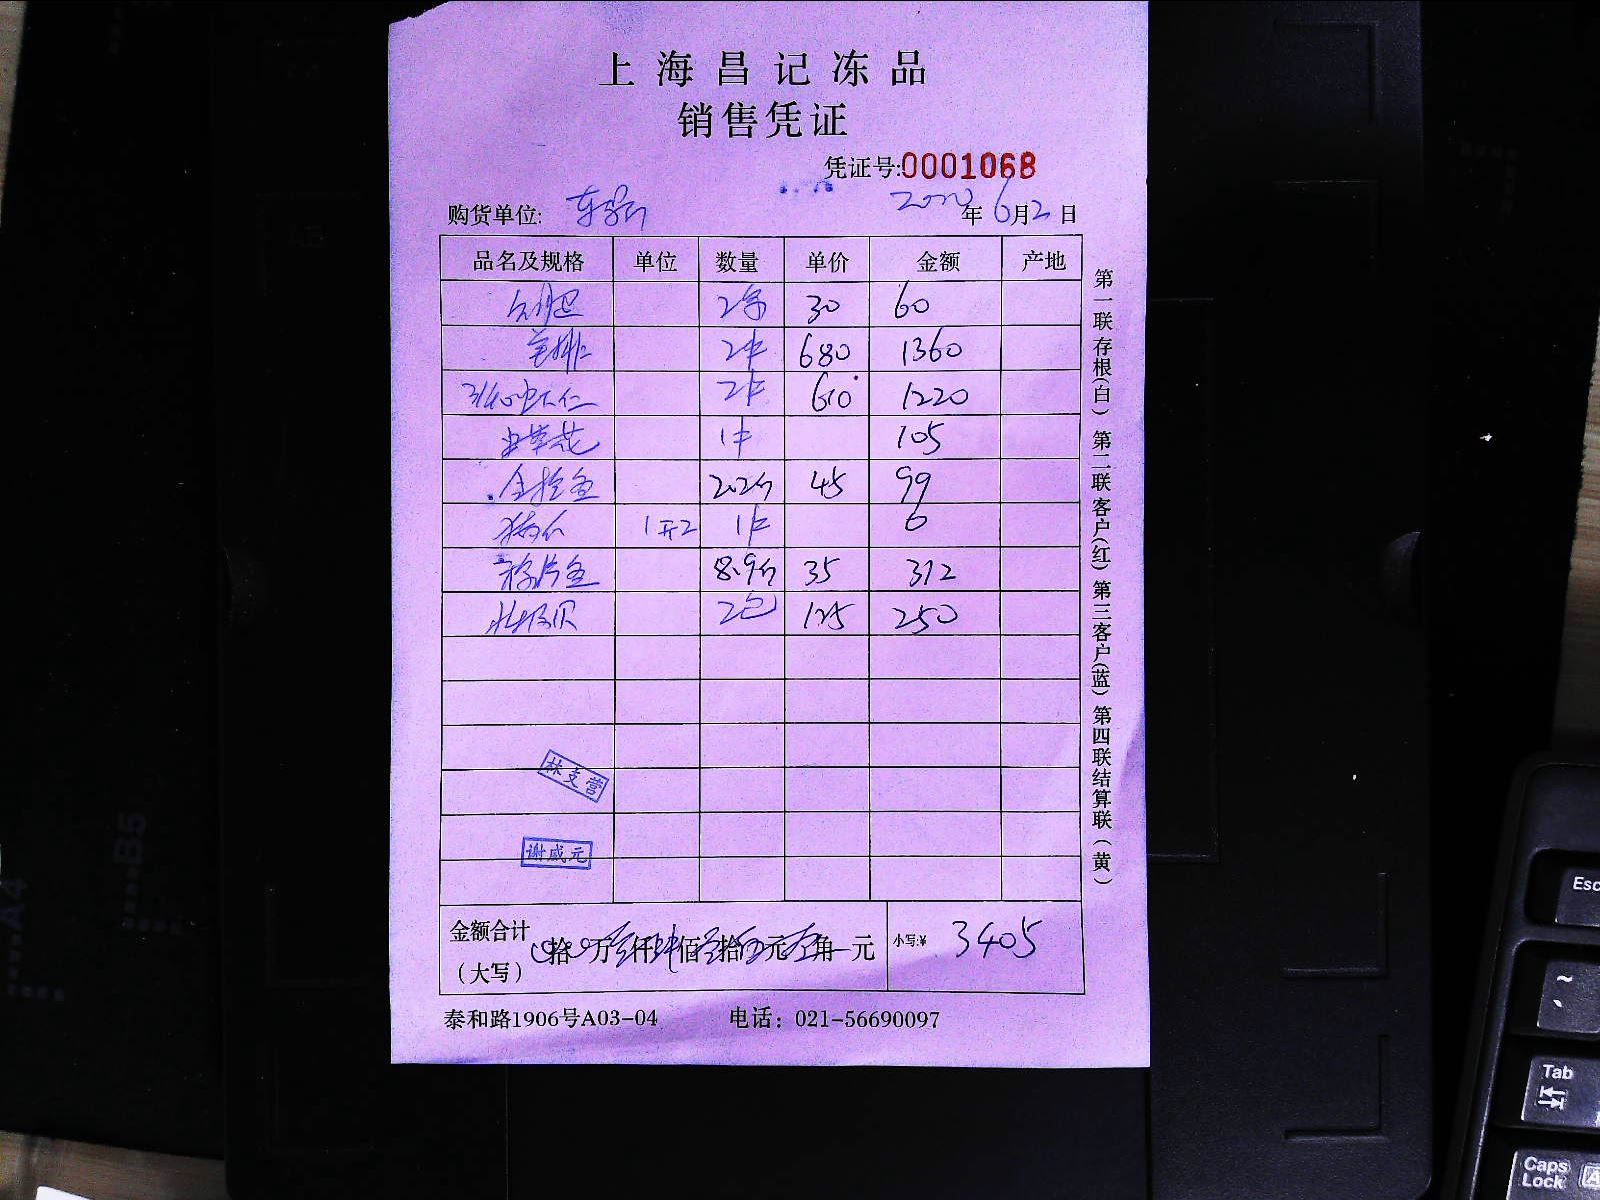 上海昌记冻品
销售凭证
凭证号:0001068
购货单位: 年6月2日
品名及规格 单位 数量 单价 金额 产地
30 60
羊排 2件 680 1360
31/40虾仁 2件 610 1220
虫草花 1件 105
金枪鱼 2.2斤 45 99
1开2 1件 6
8.9斤 35 312
北极贝 2包 125 250
林支营
谢咸元
金额合计
(大写) 拾 万叁仟肆佰零拾伍元 角 元 小写:¥ 3405
泰和路1906号A03-04 电话：021-56690097
第一联存根(白)第二联客户(红)第三客户(蓝)第四联结算联(黄)
A4
B5
Esc
~
Tab
Caps
Lock
A